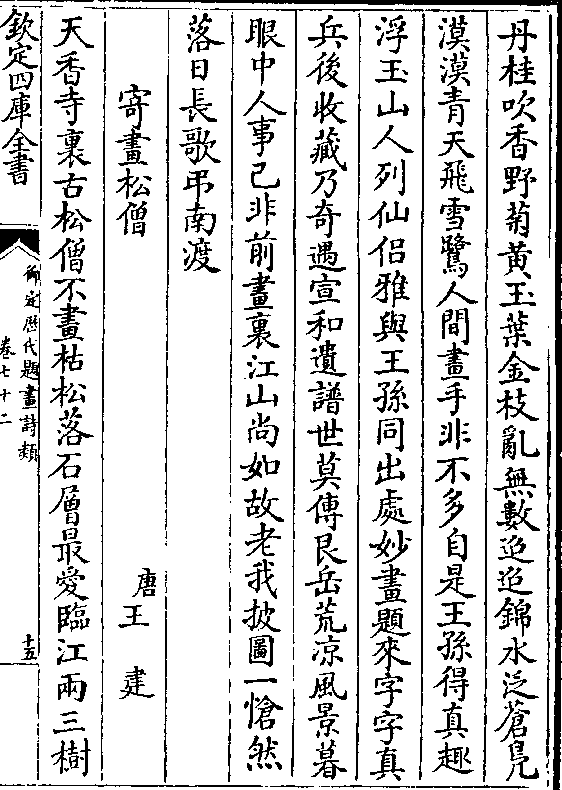 丹桂吹香野菊黄玉葉金枝亂無數迢迢錦水泛蒼鳬
漠漠青天飛雪鷺人間畫手非不多自是王孫得真趣
浮玉山人列仙侣雅與王孫同出處妙畫題來字字真
兵後收藏乃奇遇宣和遺譜世莫傳艮岳荒凉風景暮
眼中人事已非前畫裏江山尚如故老我披圖一愴然
落日長歌弔南渡
寄畫松僧
唐王建
天香寺裏古松僧不畫枯松落石層最愛臨江兩三樹
欽定四庫全書
御定歴代題畫詩類
卷七十二
十五